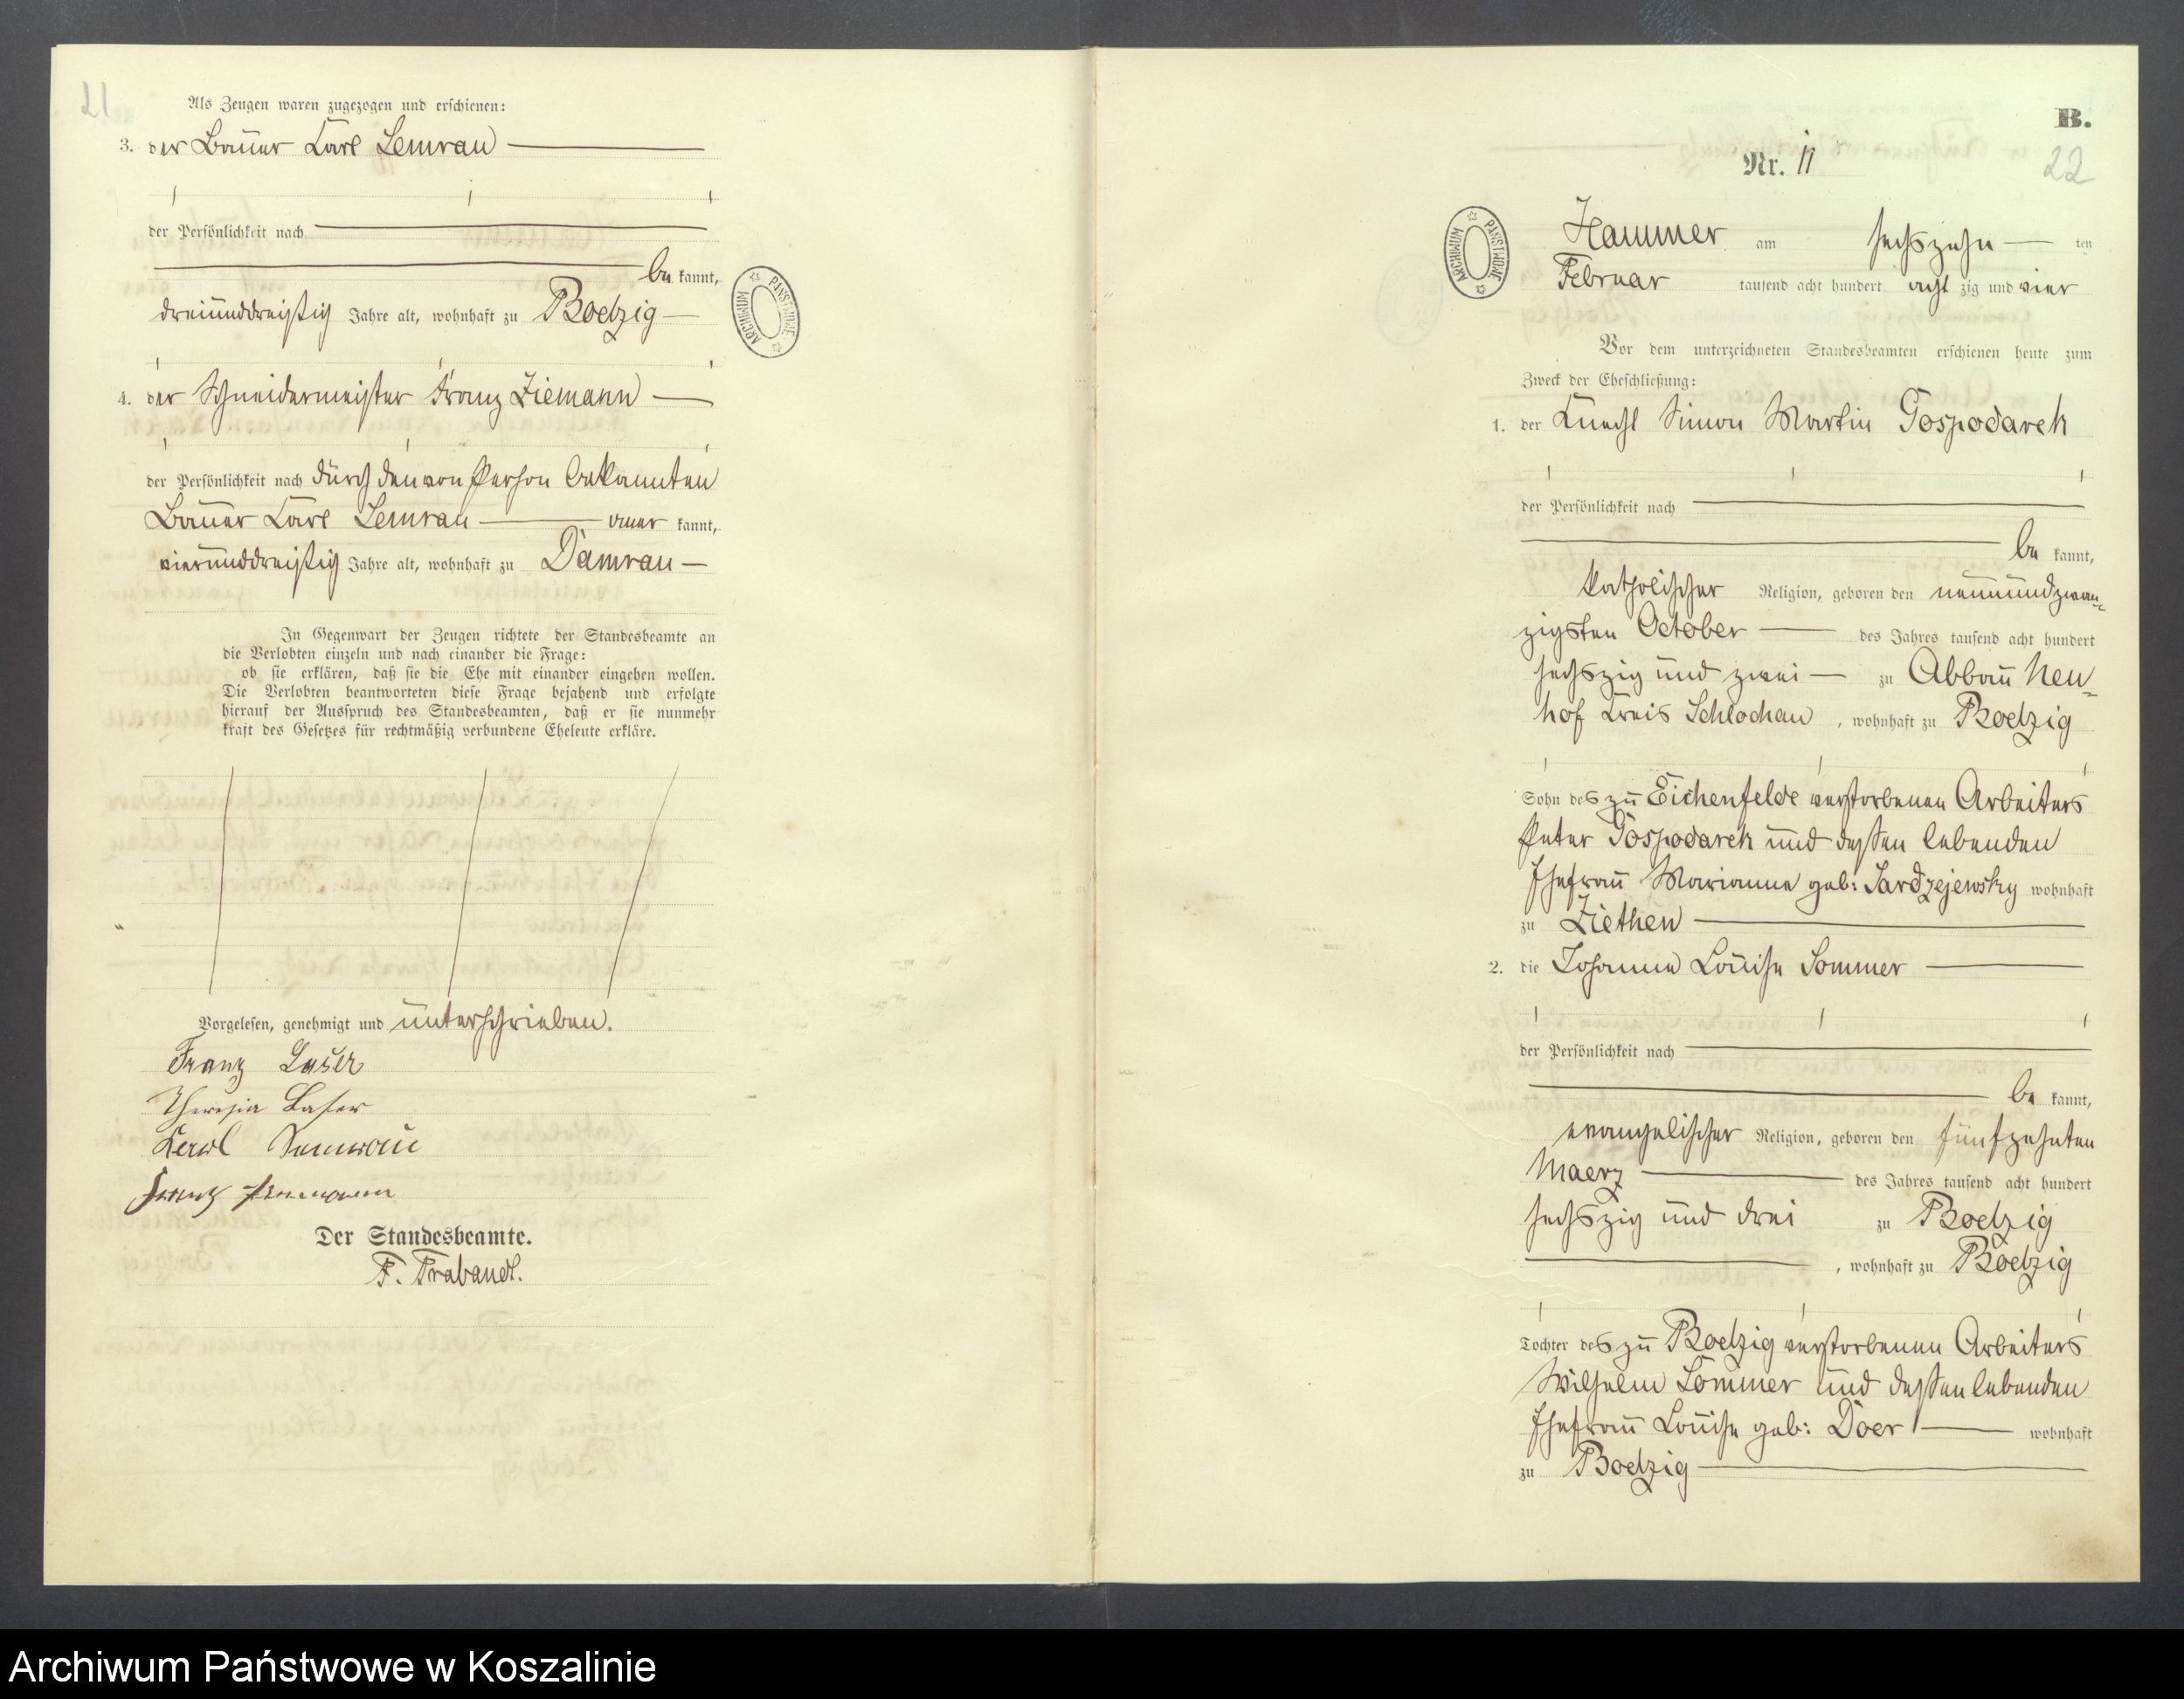 21
Als Zeugen waren zugezogen und erschienen:
3. der Bauer Carl Semrau
der Persönlichkeit nach
be kannt,
dreiunddreißig Jahre alt, wohnhaft zu Boelzig
4. der Schneidermeister Franz Ziemann
der Persönlichkeit nach durch den von Person bekannten
Bauer Carl Semrau aner kannt,
vierunddreißig Jahre alt, wohnhaft zu Damrau
In Gegenwart der Zeugen richtete der Standesbeamte an
die Verlobten einzeln und nach einander die Frage:
ob sie erklären, daß sie die Ehe mit einander eingehen wollen.
Die Verlobten beantworteten diese Frage bejahend und erfolgte
hierauf der Ausspruch des Standesbeamten, daß er sie nunmehr
kraft des Gesetzes für rechtmäßig verbundene Eheleute erkläre.
Vorgelesen, genehmigt und unterschrieben.
Franz Laser
Theresia Laser
Karl Semrau
Franz Ziemann
Der Standesbeamte.
F. Trabandt.
ARCHIWUM PAŃSTWOWE
B.
Nr. 11
22
ARCHIWUM PAŃSTWOWE
Hammer am sechszehn ten
Februar tausend acht hundert acht zig und vier
Vor dem unterzeichneten Standesbeamten erschienen heute zum
Zweck der Eheschließung:
1. der Knecht Simon Martin Gospodarek
der Persönlichkeit nach
be kannt,
katholischer Religion, geboren den neunundzwan-
zigsten October des Jahres tausend acht hundert
sechszig und zwei zu Abbau Neu-
hof Kreis Schlochau, wohnhaft zu Boelzig
Sohn des zu Eichenfelde verstorbenen Arbeiters
Peter Gospodarek und dessen lebenden
Ehefrau Marianna geb: Sardzejewsky wohnhaft
zu Ziethen
2. die Johanna Louise Sommer
der Persönlichkeit nach
be kannt,
evangelischer Religion, geboren den fünfzehnten
Maerz des Jahres tausend acht hundert
sechszig und drei zu Boelzig
, wohnhaft zu Boelzig
Tochter des zu Boelzig verstorbenen Arbeiters
Wilhelm Sommer und dessen lebenden
Ehefrau Louise geb: Doer wohnhaft
zu Boelzig
Archiwum Państwowe w Koszalinie